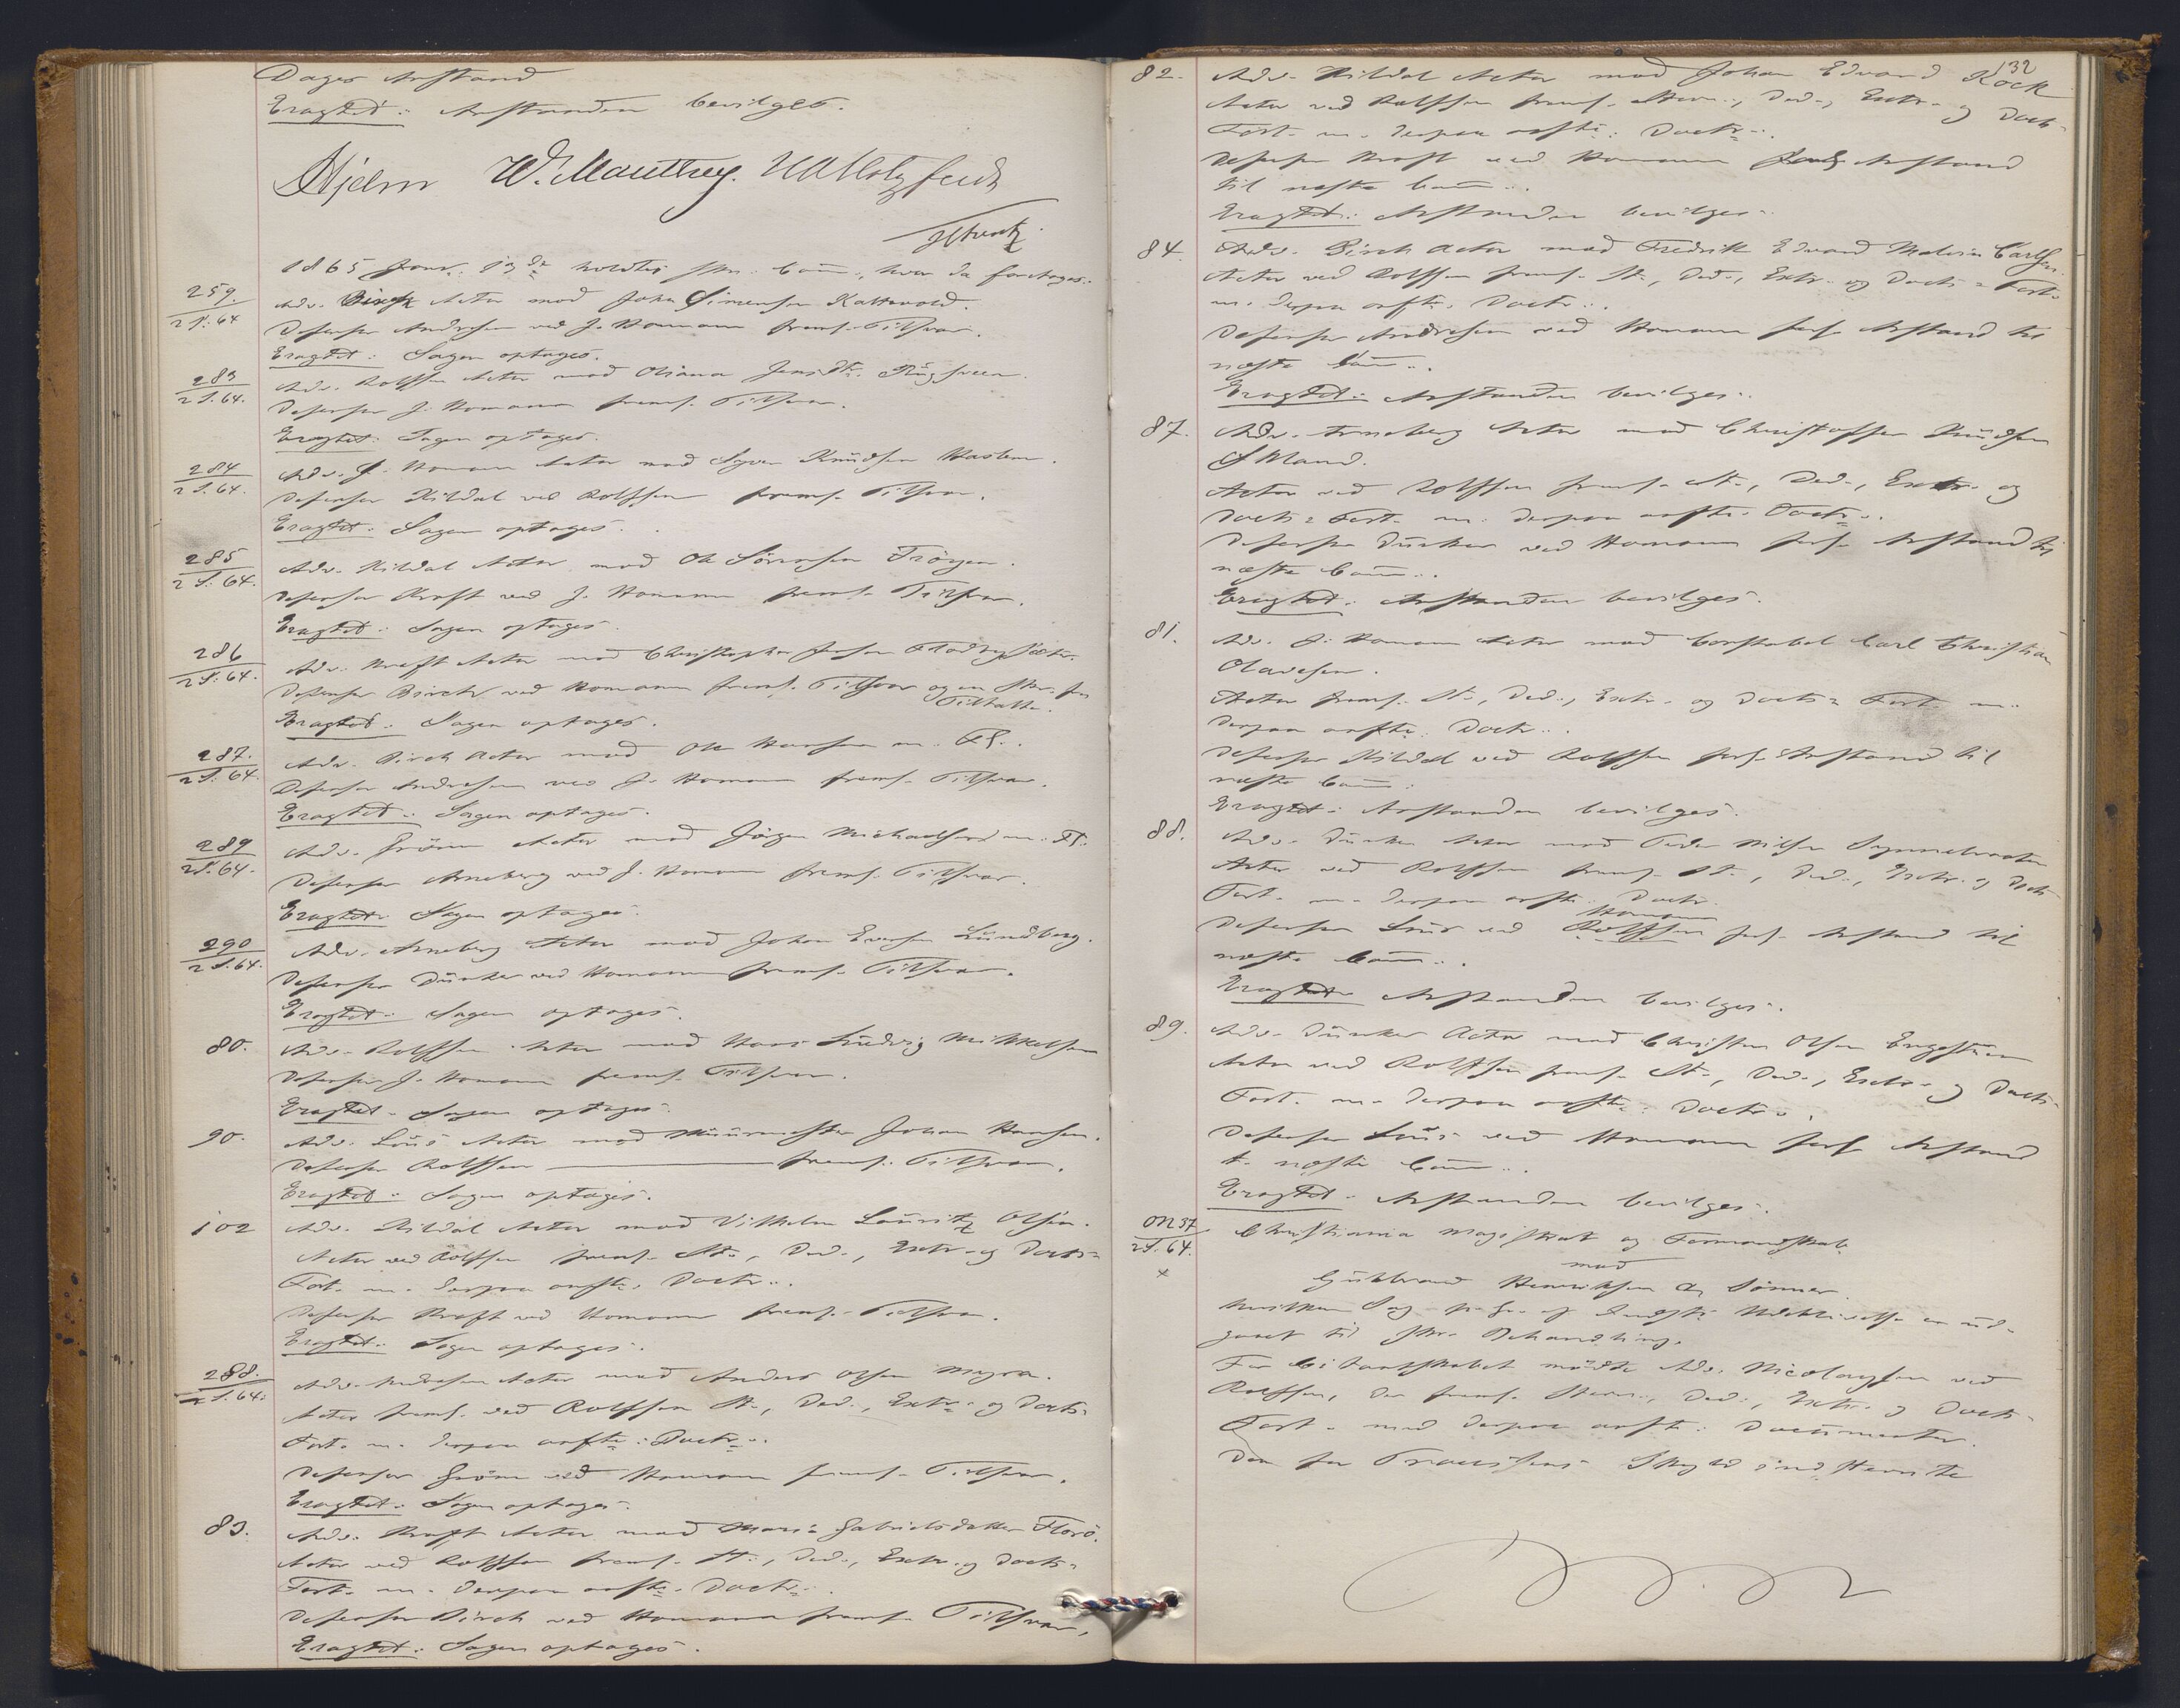 Dages Anstand
Eragtet: Anstanden bevilges.
Hjelm W. Manthey.
1865 Janr. 13de holdtes Com., hvor da foretoges:
259.
2 S. 64
Adv. Birch Actor mod John Simensen Kaltvold.
Defensor Andresen ved J. Homann freml. Tilsvar.
Eragtet: Sagen optages.
283
2 S. 64.
Adv. Rolfsen Actor mod Oliana Jensdtr.
Defensor J. Homann freml. Tilsvar.
Eragtet: Sagen optages.
284
2 S. 64.
Adv. J. Homann Actor mod Syver Knudsen
Defensor Hildal ved Rolfsen freml. Tilsvar.
Eragtet: Sagen optages.
285
2 S. 64.
Adv. Hildal Actor mod Ole Sörensen
Defensor Kraft ved J. Homann freml. Tilsvar.
Eragtet: Sagen optages.
286
2 S. 64.
Adv. Kraft Actor mod Christopher
Defensor Birch ved Homann freml. Tilsvar og en Skr. fra
Tiltalte.
Eragtet: Sagen optages.
287.
2 S. 64
Adv. Birch Actor mod Ole Hansen m. Fl.
Defensor Andresen ved J. Homann freml. Tilsvar.
Eragtet: Sagen optages.
289
2 S. 64.
Adv. Grönn Actor mod Jörgen Michaelsen m. Fl.
Defensor Arneberg ved J. Homann freml. Tilsvar.
Eragtet: Sagen optages.
290
2 S. 64.
Adv. Arneberg Actor mod Johan Evensen Lundberg.
Defensor Dunker ved Homann freml. Tilsvar.
Eragtet: Sagen optages.
80.
Adv. Rolfsen Actor mod Hans Ludvig Mikkelsen
Defensor J. Homann freml. Tilsvar.
Eragtet: Sagen optages.
90.
Adv. Lous Actor mod Muurmester Johan Hansen.
Defensor Rolfsen freml. Tilsvar.
Eragtet: Sagen optages.
102
Adv. Hildal Actor mod Vilhelm Lauritz Olsen.
Actor ved Rolfsen freml. St., Ded., Extr. og Docts
Fort. m. derpaa anfte. Doctr.
Defensor Kraft ved Homann freml. Tilsvar.
Eragtet: Sagen optages.
288.
2 S. 64.
Adv. Andresen Actor mod Anders Olsen Myra.
Actor freml. ved Rolfsen St., Ded., Extr. og Docts
Fort. m. derpaa anfte. Doctr.
Defensor Grönn ved Homann freml. Tilsvar.
Eragtet: Sagen optages.
83.
Adv. Kraft Actor mod Maria Gabrielsdatter Florö.
Actor ved Rolfsen freml. St., Ded., Extr. og Docts
Fort. m. derpaa anfte. Doctr.
Defensor Birch ved Homann freml. Tilsvar.
Eragtet: Sagen optages.
132
82.
Adv. Hildal Actor mod Johan Edvard Kock
Actor ved Rolfsen freml. Stevn., Ded., Extr. og Docts
Fort. m. derpaa anfte. Doctr.
Defensor Kraft ved Homann Anstand
til næste Com.
Eragtet: Anstanden bevilges.
84.
Adv. Birch Actor mod Fredrik Edvard Carlsen.
Actor ved Rolfsen freml. St., Ded., Extr. og Docts Fort.
m. derpaa anfte. Doctr.
Defensor Andresen ved Homann forl. Anstand til
næste Com.
Eragtet: Anstanden bevilges.
87.
Adv. Arneberg Actor mod Christoffer Knudsen
Actor ved Rolfsen freml. St., Ded., Extr. og
Docts Fort. m. derpaa anfte. Doctr.
Defensor Dunker ved Homann forl. Anstand til
næste Com.
Eragtet: Anstanden bevilges.
81.
Adv. J. Homann Actor mod Constabel Carl Christian
Olavesen.
Actor freml. St., Ded., Extr. og Docts Fort. m.
derpaa anfte. Doctr.
Defensor Hildal ved Rolfsen forl. Anstand til
næste Com.
Eragtet: Anstanden bevilges.
88.
Adv. Dunker Actor mod Peder Nilsen
Actor ved Rolfsen freml. St., Ded., Extr. og Docts
Fort. m. derpaa anfte. Doctr.
Homann
Defensor Lous ved Rolfsen forl. Anstand til
næste Com.
Eragtet: Anstanden bevilges.
89.
Adv. Dunker Actor mod Christen Olsen
Actor ved Rolfsen freml. St., Ded., Extr. og Docts
Fort. m. derpaa anfte. Doctr.
Defensor Lous ved Homann forl. Anstand
t. næste Com.
Eragtet: Anstanden bevilges.
2 S. 64.
x
Christiania Magistrat og Formandskab
mod
Gulbrand Henriksen & Sönner.
hvilken Sag er ud-
gaaet til skr. Behandling.
For Citantskabet mödte Adv. Nicolaysen ved
Rolfsen, der freml. Stevn., Ded., Extr. og Docts
Fort. med derpaa anfte. Documenter.
Den for Processens Skyld indstevnte